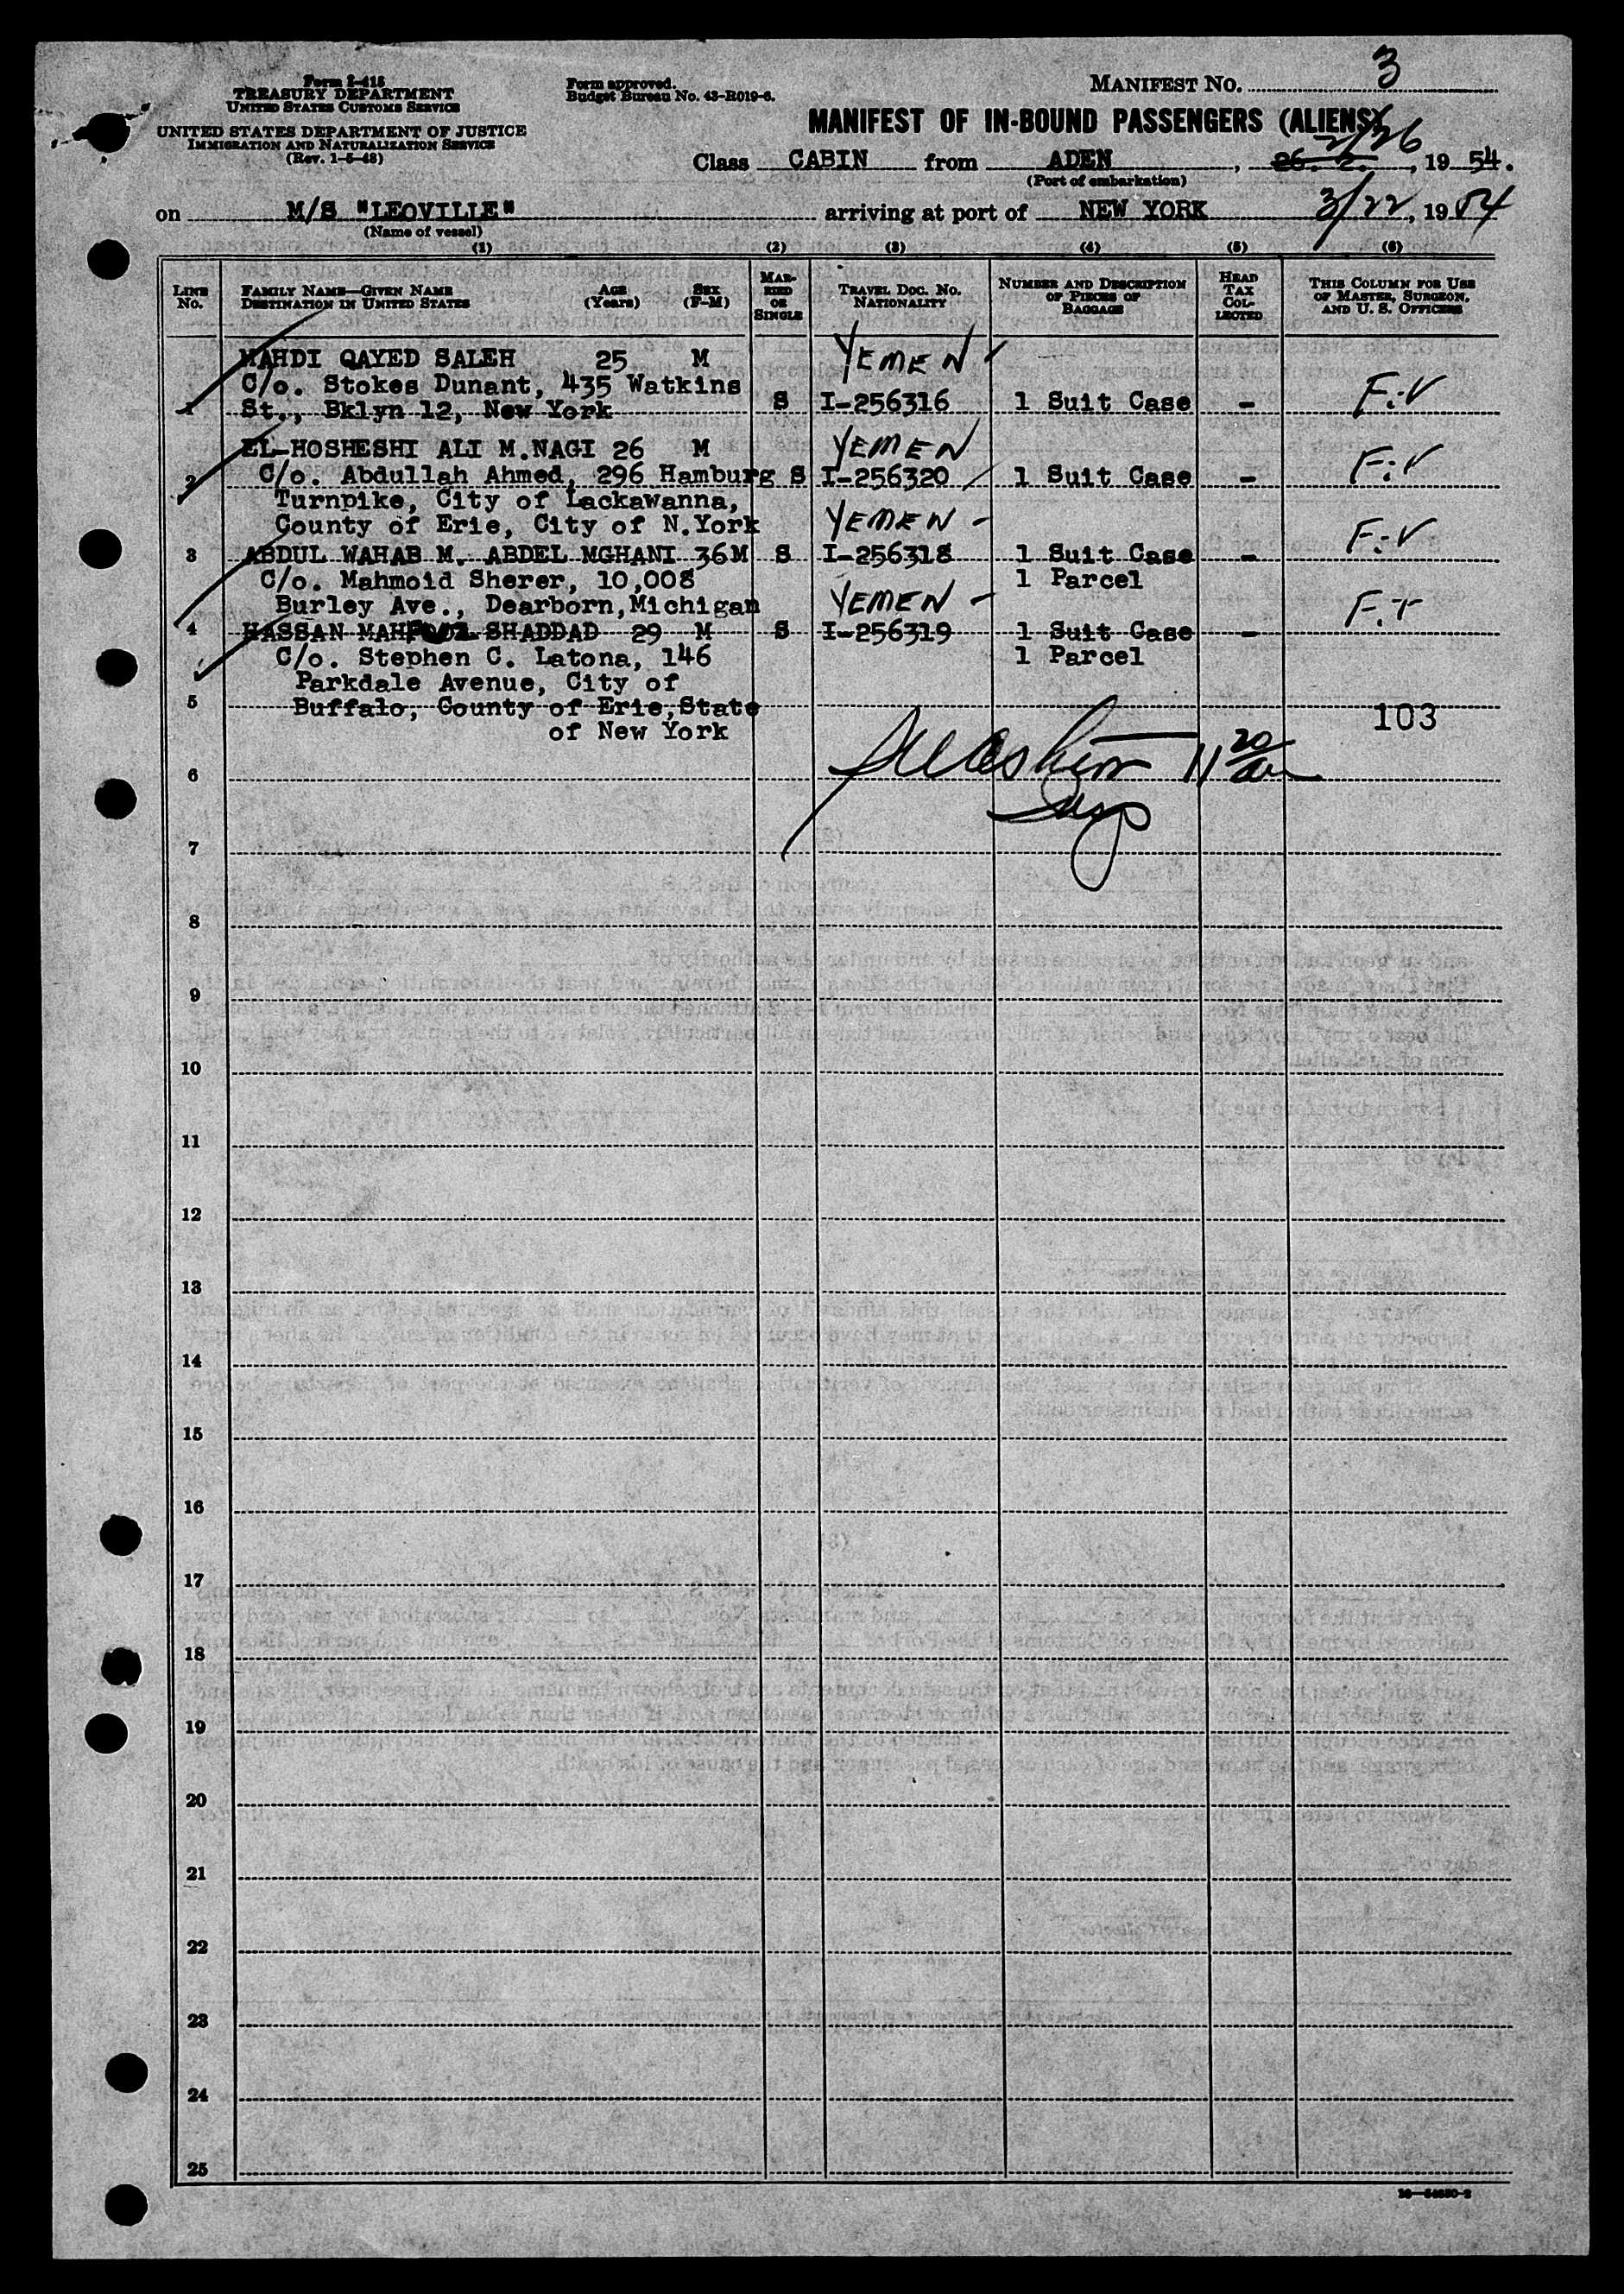 Form I-415
TREASURY DEPARTMENT
UNITED STATES CUSTOMS SERVICE
UNITED STATES DEPARTMENT OF JUSTICE
IMMIGRATION AND NATURALIZATION SERVICE
(Rev. 1-5-48)
Form approved.
Budget Bureau No. 43-R019-6.
MANIFEST NO. 3
MANIFEST OF IN-BOUND PASSENGERS (ALIENS)
2/26
Class CABIN from ADEN, 26. 2., 1954.
(Port of embarkation)
on M/S "LEOVILLE" arriving at port of NEW YORK 3/22, 1954
(Name of vessel)
(1) (2) (3) (4) (5) (6)
LINE NO.
FAMILY NAME—GIVEN NAME
DESTINATION IN UNITED STATES
AGE (Years)
SEX (F-M)
MARRIED OR SINGLE
TRAVEL DOC. NO.
NATIONALITY
NUMBER AND DESCRIPTION OF PIECES OF BAGGAGE
HEAD TAX COLLECTED
THIS COLUMN FOR USE OF MASTER, SURGEON, AND U. S. OFFICERS
MAHDI QAYED SALEH 25 M YEMEN
C/o. Stokes Dunant, 435 Watkins
1 St., Bklyn 12, New York S I-256316 1 Suit Case - F.V
EL-HOSHESHI ALI M.NAGI 26 M YEMEN
2 C/o. Abdullah Ahmed, 296 Hamburg S I-256320 1 Suit Case - F.V
Turnpike, City of Lackawanna,
County of Erie, City of N.York YEMEN -
3 ABDUL WAHAB M. ABDEL MGHANI 36M S I-256318 1 Suit Case - F.V
C/o. Mahmoid Sherer, 10,008 1 Parcel
Burley Ave., Dearborn,Michigan YEMEN -
4 HASSAN SHADDAD 29 M S I-256319 1 Suit Case -
C/o. Stephen C. Latona, 146 1 Parcel
Parkdale Avenue, City of
5 Buffalo, County of Erie,State 103
of New York
11 20
6
7
8
9
10
11
12
13
14
15
16
17
18
19
20
21
22
23
24
25